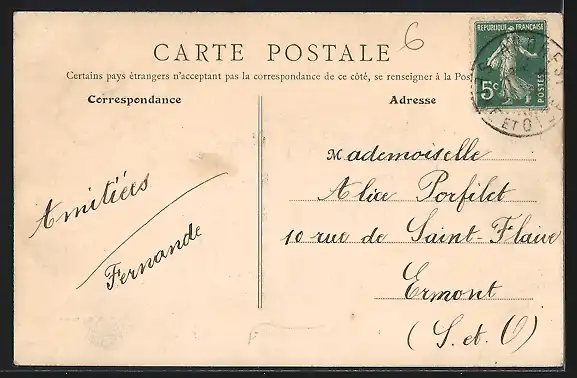 CARTE POSTALE
6
Certains pays étrangers n'acceptent pas la correspondance de ce côté, se renseigner à la Pos
RÉPUBLIQUE FRANÇAISE
5c
POSTES
ET OI
Correspondance
Amitiées
Fernande
Adresse
Mademoiselle
Alice Porfilet
10 rue de Saint-Flaive
Ermont
(S. et O)